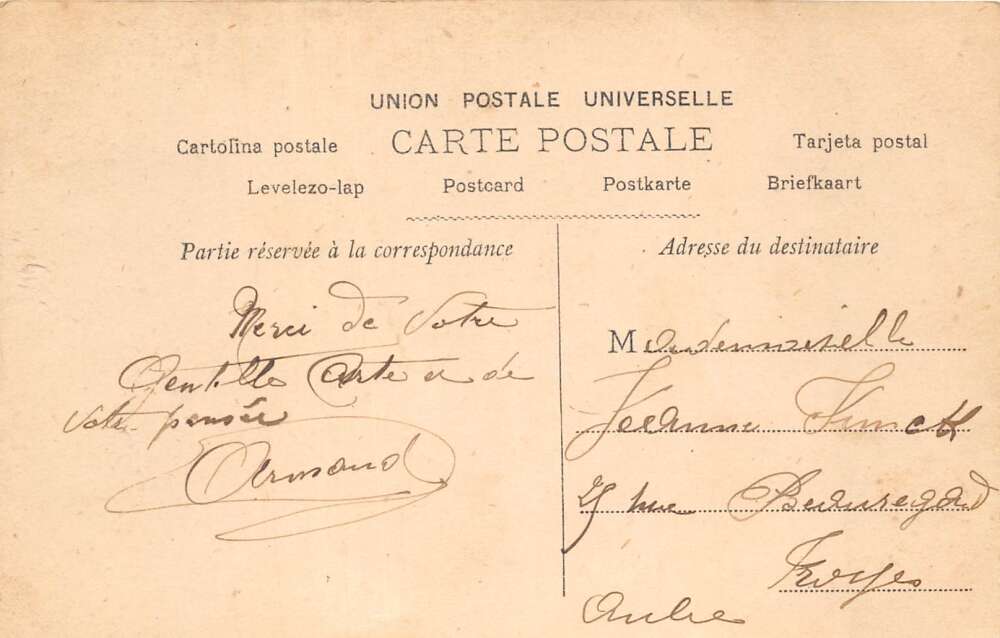 UNION POSTALE UNIVERSELLE
Cartolina postale CARTE POSTALE Tarjeta postal
Levelezo-lap Postcard Postkarte Briefkaart
Partie réservée à la correspondance
Merci de Votre
Gentille Carte et de
votre pensée
Armand
Adresse du destinataire
Mademoiselle
Jeanne
rue Beauregard
Troyes
Aube